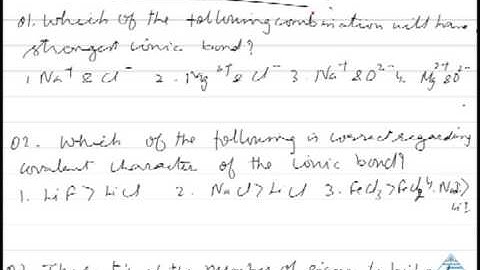 01. Which of the following combination will have
strongest ionic bond?
1. Na⁺ & Cl⁻ 2. Mg²⁺ & Cl⁻ 3. Na⁺ & O²⁻ 4. Mg²⁺ & O²⁻
02. Which of the following is correct regarding
covalent character of the ionic bond?
1. LiF > LiCl 2. NaCl > LiCl 3. FeCl₃ > FeCl₂ 4. NaI >
LiI
03. The of the number of